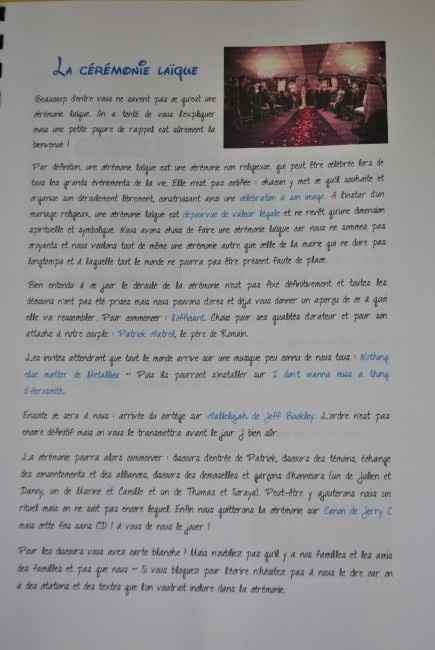 La cérémonie laïque
Beaucoup d'entre vous ne savent pas ce qu'est une
cérémonie laïque. On a tenté de vous l'expliquer
mais une petite piqure de rappel est sûrement la
bienvenue !
Par définition, une cérémonie laïque est une cérémonie non religieuse, qui peut être célébrée lors de
tous les grands événements de la vie. Elle n'est pas codifiée : chacun y met ce qu'il souhaite et
organise son déroulement librement, construisant ainsi une célébration à son image. A l'instar d'un
mariage religieux, une cérémonie laïque est dépourvue de valeur légale et ne revêt qu'une dimension
spirituelle et symbolique. Nous avons choisi de faire une cérémonie laïque car nous ne sommes pas
croyants et nous voulions tout de même une cérémonie autre que celle de la mairie qui ne dure pas
longtemps et à laquelle tout le monde ne pourra pas être présent faute de place.
Bien entendu à ce jour le déroulé de la cérémonie n'est pas fixé définitivement et toutes les
décisions n'ont pas été prises mais nous pouvons d'ores et déjà vous donner un aperçu de ce à quoi
elle va ressembler. Pour commencer : l'officiant. Choisi pour ses qualités d'orateur et pour son
attache à notre couple : Patrick, le père de Romain.
Les invités attendront que tout le monde arrive sur une musique peu connu de nous tous : Nothing
else matter de Metallica – Puis ils pourront s'installer sur I don't wanna miss a thing
d'Aerosmith.
Ensuite ce sera à nous : arrivée du cortège sur Hallelujah de Jeff Buckley. L'ordre n'est pas
encore définitif mais on vous le transmettra avant le jour j bien sûr.
La cérémonie pourra alors commencer : discours d'entrée de Patrick, discours des témoins, échange
des consentements et des alliances, discours des demoiselles et garçons d'honneurs (un de Julien et
Danny, un de Marine et Camille et un de Thomas et Soraya). Peut-être y ajouterons nous un
rituel mais on ne sait pas encore lequel. Enfin nous quitterons la cérémonie sur Canon de Jerry C
mais cette fois sans CD ! A vous de nous le jouer !
Pour les discours vous avez carte blanche ! Mais n'oubliez pas qu'il y a nos familles et les amis
des familles et pas que nous – Si vous bloquez pour l'écrire n'hésitez pas à nous le dire car on
a des citations et des textes que l'on voudrait inclure dans la cérémonie.